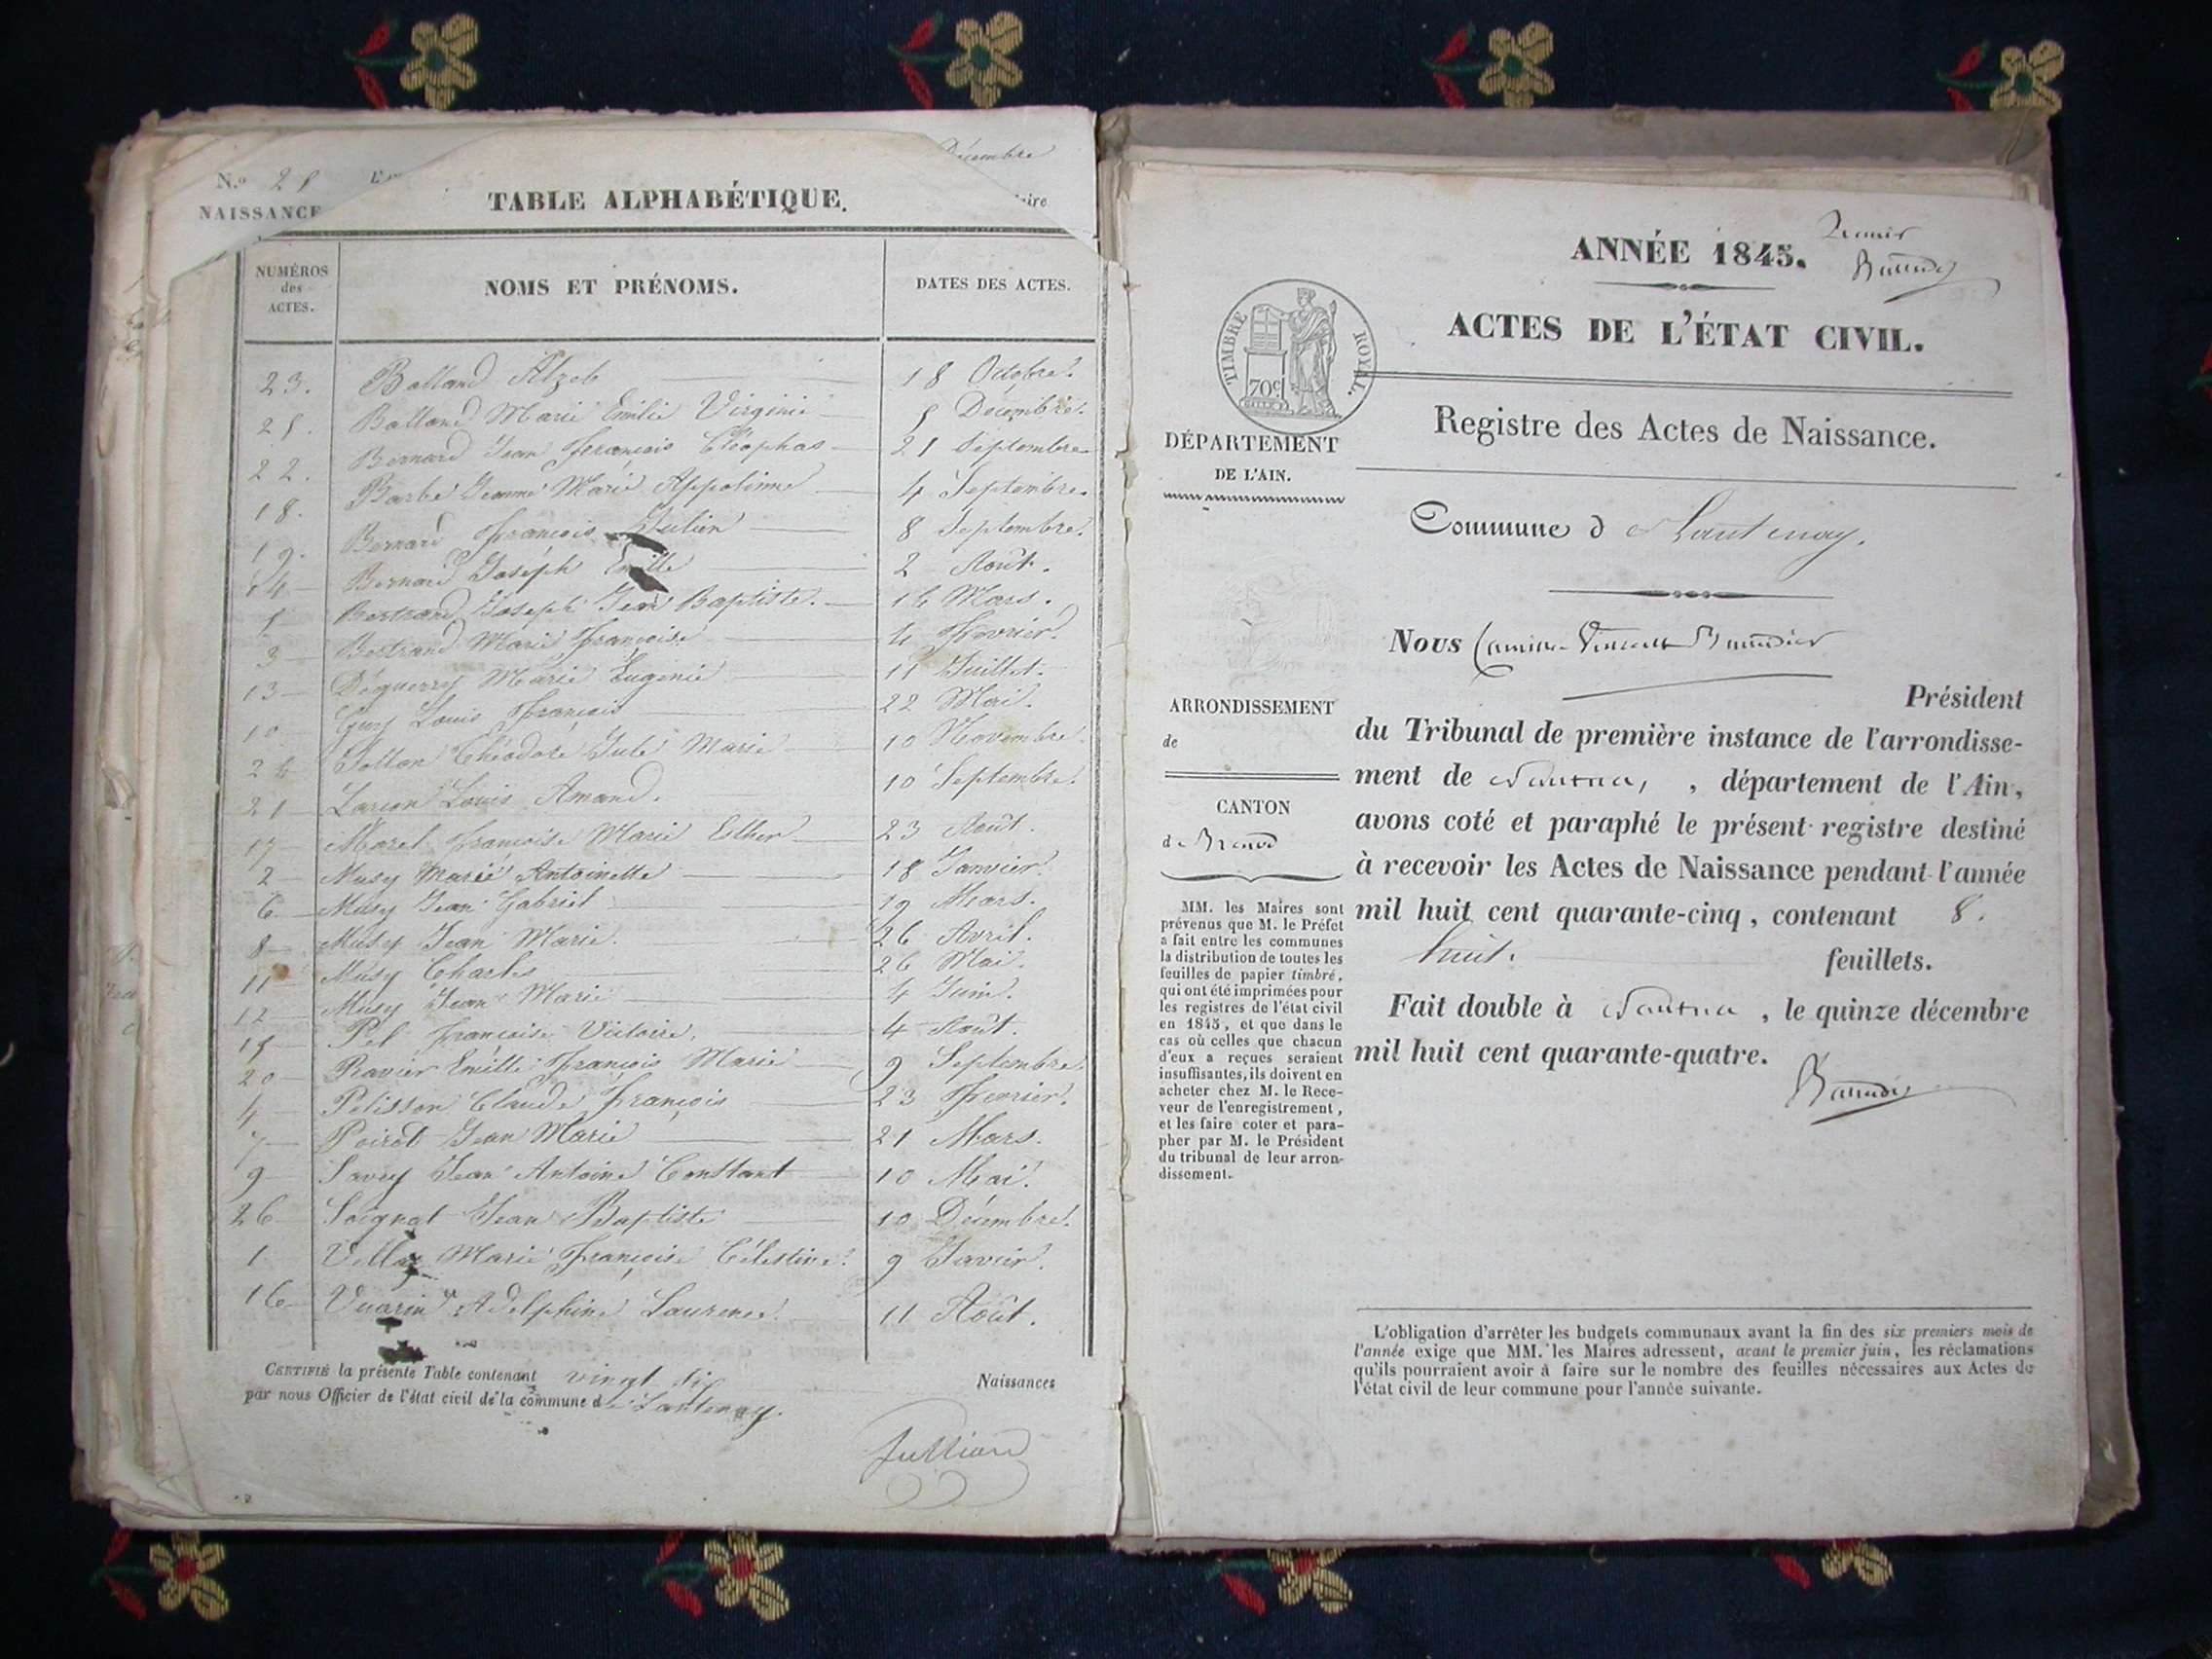 Décembre
N.º 25
NAISSANCE
TABLE ALPHABÉTIQUE.
aire
NUMÉROS des ACTES. NOMS ET PRÉNOMS. DATES DES ACTES.
23. Balland Alzeb 18 Octobre.
25. Balland Marie Emilie Virginie 5 Décembre.
22. Bernard Jean François Cléophas 21 Septembre
18. Barbe Jeanne Marie Appolinne 4 Septembre.
19. Bernard François Julien 8 Septembre.
14 Bernard Joseph Emille 2 Août.
5 Bertrand Joseph Jean Baptiste. 16 Mars.
3 Bertrand Marie Françoise 4 Fevrier.
13 Déguerry Marie Eugenie 11 Juillet.
10 Guy Louis François 22 Mai.
24 Jollon Théodore Jule Marie 10 Novembre.
21 Larçon Louis Amand. 10 Septembre.
17 Morel Françoise Marie Esther 23 Août.
2 Musy Marie Antoinette 18 Janvier.
6 Musy Jean Gabriel 19 Mars.
8 Musy Jean Marie. 26 Avril.
11 Musy Charles 26 Mai.
12 Musy Jean Marie 4 Juin.
15 Pel Françoise Victoire. 4 Août.
20 Ravier Emille François Marie 9 Septembre
4 Pelisson Claude François 23 Fevrier.
7 Poirot Jean Marie 21 Mars.
9 Savey Jean Antoine Constant 10 Mai.
26 Soignat Jean Baptiste 10 Décembre.
1 Marie Françoise Célestine. 9 Javier.
16 Vuarin Adelphine Laurence. 11 Août.
CERTIFIÉ la présente Table contenant vingt six Naissances
par nous Officier de l'état civil de la commune de Lantenay.
Jullian
ANNÉE 1845.
ACTES DE L'ÉTAT CIVIL.
TIMBRE ROYAL.
70c
Registre des Actes de Naissance.
DÉPARTEMENT
DE L'AIN.
Commune d Lantenay.
Nous Camille Vincent
Président
du Tribunal de première instance de l'arrondisse-
ment de Nantua, , département de l'Ain,
avons coté et paraphé le présent registre destiné
à recevoir les Actes de Naissance pendant l'année
mil huit cent quarante-cinq, contenant 8.
huit. feuillets.
Fait double à Nantua , le quinze décembre
mil huit cent quarante-quatre.
ARRONDISSEMENT
de
CANTON
de Brenod
MM. les Maires sont
prévenus que M. le Préfet
a fait entre les communes
la distribution de toutes les
feuilles de papier timbré,
qui ont été imprimées pour
les registres de l'état civil
en 1845, et que dans le
cas où celles que chacun
d'eux a reçues seraient
insuffisantes, ils doivent en
acheter chez M. le Rece-
veur de l'enregistrement,
et les faire coter et para-
pher par M. le Président
du tribunal de leur arron-
dissement.
L'obligation d'arrêter les budgets communaux avant la fin des six premiers mois de
l'année exige que MM. les Maires adressent, avant le premier juin, les réclamations
qu'ils pourraient avoir à faire sur le nombre des feuilles nécessaires aux Actes de
l'état civil de leur commune pour l'année suivante.